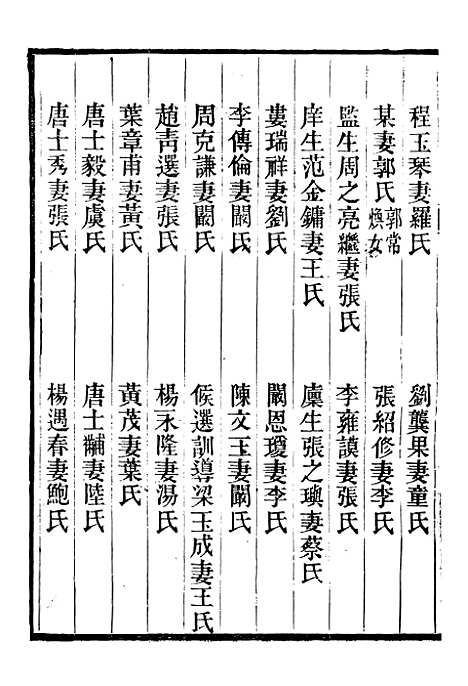 程玉琴妻羅氏　劉龔果妻童氏
某妻郭氏郭常煥女　張紹修妻李氏
監生周之亮繼妻張氏　李雍謨妻張氏
庠生范金鏞妻王氏　廩生張之璵妻蔡氏
婁瑞祥妻劉氏　闞恩瓊妻李氏
李傳倫妻闞氏　陳文玉妻闞氏
周克謙妻闞氏　候選訓導梁玉成妻王氏
趙靑選妻張氏　楊永隆妻湯氏
葉章甫妻黃氏　黃茂妻葉氏
唐士毅妻虞氏　唐士黼妻陸氏
唐士秀妻張氏　楊遇春妻鮑氏